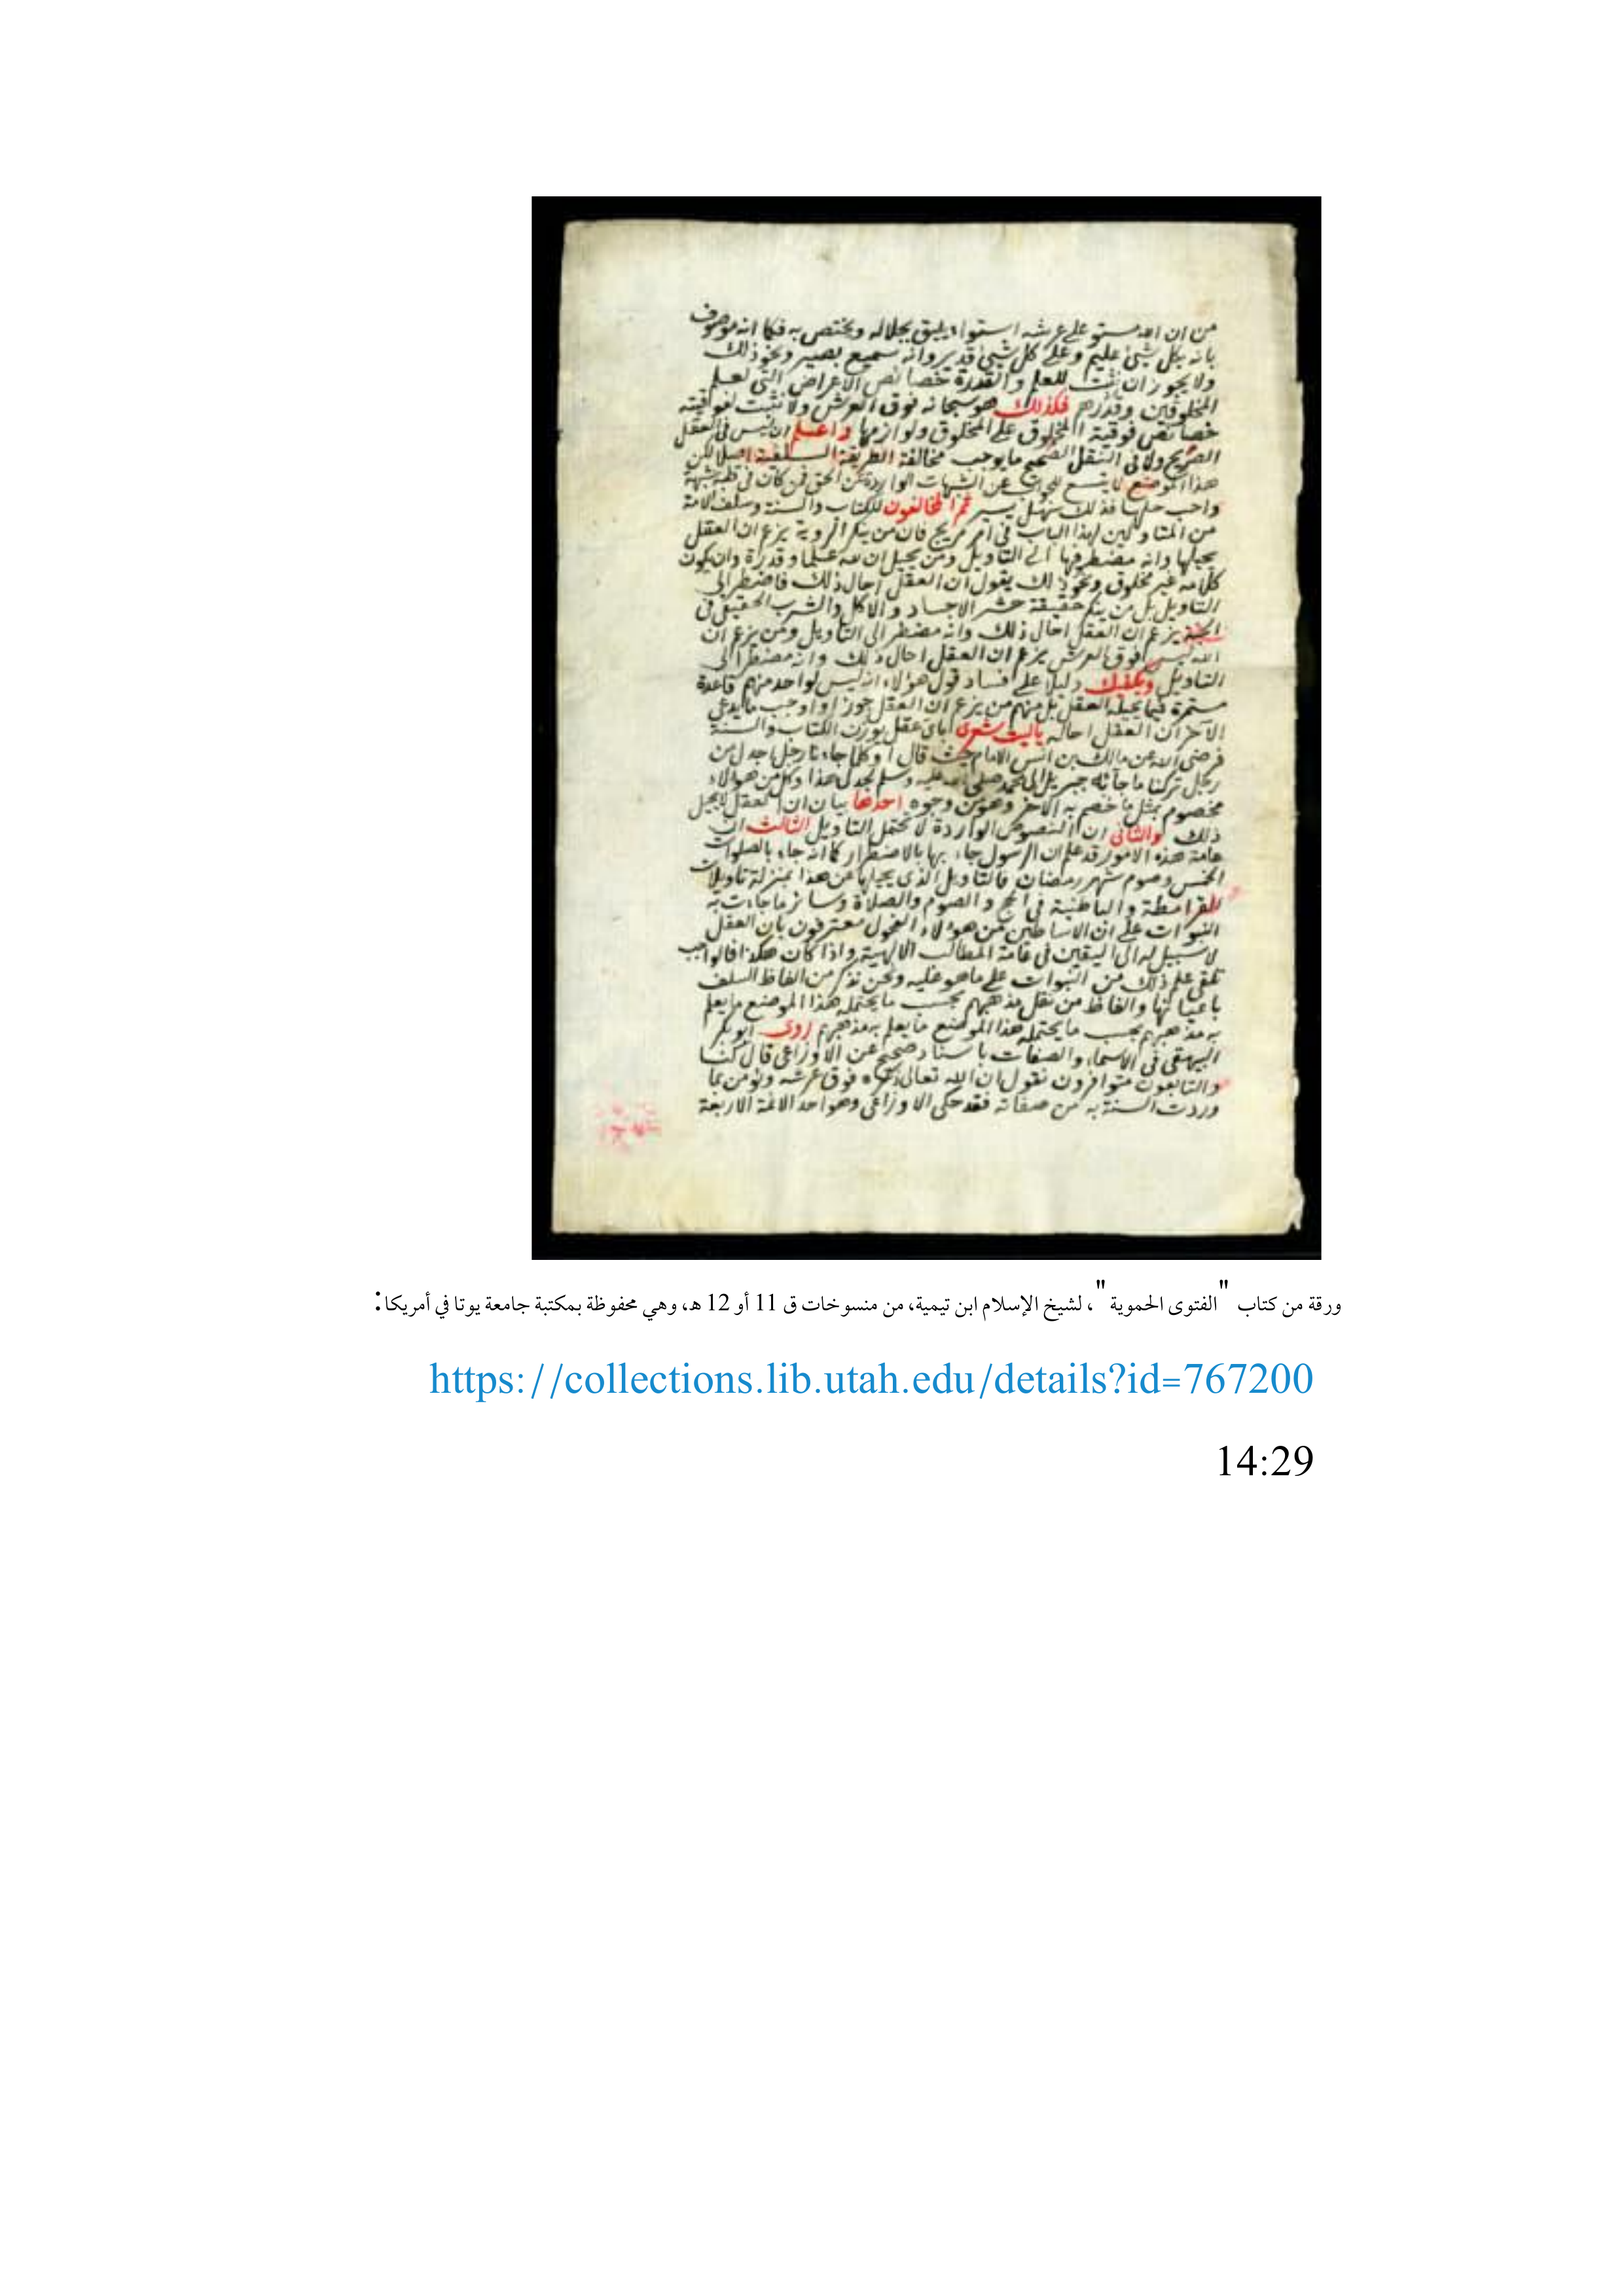 من ان الله مستو على عرشه استواء يليق بجلاله ويختص به فكما انه موصوف
بانه بكل شيئ عليم وعلى كل شيئ قدير وانه سميع بصير ونحو ذلك
ولا يجوز ان نثبت للعلم والقدرة خصائص الاعراض التي لعلم
المخلوقين وقدرهم فكذلك هو سبحانه فوق العرش ولا نثبت لفوقيته
خصائص فوقية المخلوق على المخلوق ولوازمها واعلم ان ليس في العقل
الصريح ولا في النقل الصحيح ما يوجب مخالفة الطريقة السلفية اصلا لكن
هذا الموضع لا يتسع للجواب عن الشبهات الواردة عن الحق فمن كان في قلبه شبهة
واحب حلها فذلك سهل يسير ثم المخالفون للكتاب والسنة وسلف الامة
من المتاولين لهذا الباب في امر مريج فان من ينكر الروية يزعم ان العقل
يحيلها وانه مضطر فيها الى التاويل ومن يحيل ان لله علما وقدرة وان يكون
كلامه غير مخلوق ونحو ذلك يقول ان العقل احال ذلك فاضطر الى
التاويل بل من ينكر حقيقة حشر الاجساد والاكل والشرب الحقيقي في
الجنة يزعم ان العقل احال ذلك وانه مضطر الى التاويل ومن يزعم ان
الله ليس فوق العرش يزعم ان العقل احال ذلك وانه مضطر الى
التاويل ويكفيك دليلا على فساد قول هؤلاء انه ليس لواحد منهم قاعدة
مستمرة فيما يحيله العقل بل منهم من يزعم ان العقل جوز او اوجب ما يدعي
الآخر ان العقل احاله ياليت شعري باي عقل يوزن الكتاب والسنة
فرضي الله عن مالك بن انس الامام حيث قال او كلما جاءنا رجل اجدل من
رجل تركنا ما جاء به جبريل الى محمد صلى الله عليه وسلم لجدل هذا وكل من هؤلاء
مخصوم بمثل ما خصم به الآخر وهو من وجوه احدها بيان ان العقل لا يحيل
ذلك والثاني ان النصوص الواردة لا تحتمل التاويل الثالث ان
عامة هذه الامور قد علم ان الرسول جاء بها بالاضطرار كما انه جاء بالصلوات
الخمس وصوم شهر رمضان فالتاويل الذي يحيلها عن هذا بمنزلة تاويلات
للقرامطة والباطنية في الحج والصوم والصلاة وسائر ما جاءت به
النبوات على ان الاساطين من هؤلاء الفحول معترفون بان العقل
لا سبيل له الى اليقين في عامة المطالب الالهية واذا كان هكذا فالواجب
تلقي علم ذلك من النبوات على ما هو عليه ونحن نذكر من الفاظ السلف
باعيانها والفاظ من نقل مذهبهم بحسب ما يحتمله هذا الموضع ما يعلم
به مذهبهم بحسب ما يحتمله هذا الموضع ما يعلم به مذهبهم روى ابو بكر
البيهقي في الاسماء والصفات باسناد صحيح عن الاوزاعي قال كنا
والتابعون متوافرون نقول ان الله تعالى ذكره فوق عرشه ونؤمن بما
وردت السنة به من صفاته فقد حكى الاوزاعي وهو احد الائمة الاربعة
ورقة من كتاب "الفتوى الحموية"، لشيخ الإسلام ابن تيمية، من منسوخات ق 11 أو 12 هـ، وهي محفوظة بمكتبة جامعة يوتا في أمريكا:
https://collections.lib.utah.edu/details?id=767200
14:29